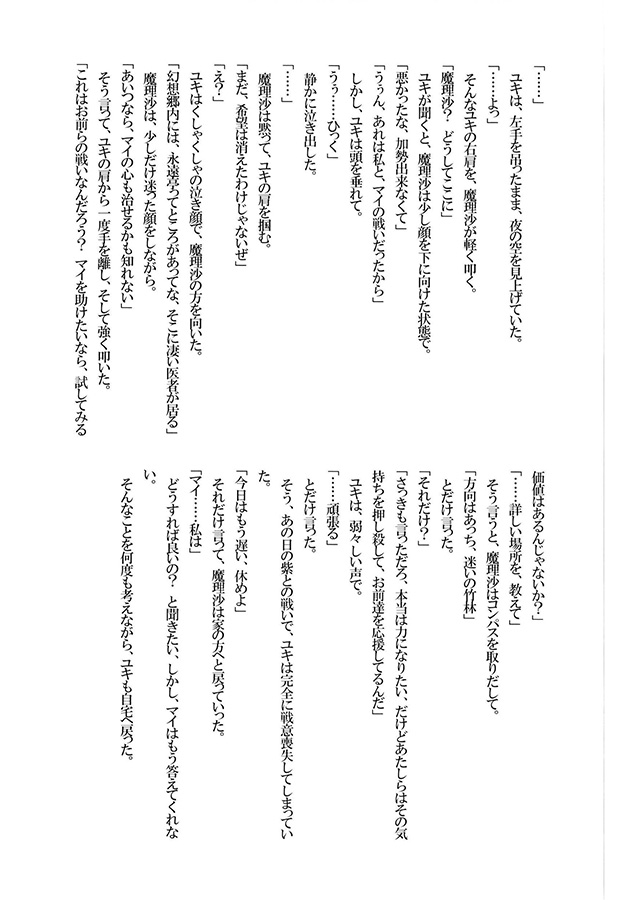 「……」
ユキは、左手を吊ったまま、夜の空を見上げていた。
「……よっ」
そんなユキの右肩を、魔理沙が軽く叩く。
「魔理沙? どうしてここに」
ユキが聞くと、魔理沙は少し顔を下に向けた状態で。
「悪かったな、加勢出来なくて」
「ううん、あれは私と、マイの戦いだったから」
しかし、ユキは頭を垂れて。
「うぅ……ひっく」
静かに泣き出した。
「……」
魔理沙は黙って、ユキの肩を掴む。
「まだ、希望は消えたわけじゃないぜ」
「え?」
ユキはくしゃくしゃの泣き顔で、魔理沙の方を向いた。
「幻想郷内には、永遠亭ってところがあってな、そこに凄い医者が居る」
魔理沙は、少しだけ迷った顔をしながら。
「あいつなら、マイの心も治せるかも知れない」
そう言って、ユキの肩から一度手を離し、そして強く叩いた。
「これはお前らの戦いなんだろう? マイを助けたいなら、試してみる
価値はあるんじゃないか?」
「……詳しい場所を、教えて」
そう言うと、魔理沙はコンパスを取りだして。
「方向はあっち、迷いの竹林」
とだけ言った。
「それだけ?」
「さっきも言っただろ、本当は力になりたい、だけどあたしらはその気
持ちを押し殺して、お前達を応援してるんだ」
ユキは、弱々しい声で。
「……頑張る」
とだけ言った。
そう、あの日の紫との戦いで、ユキは完全に戦意喪失してしまってい
た。
「今日はもう遅い、休めよ」
それだけ言って、魔理沙は家の方へと戻っていった。
「マイ……私は」
どうすれば良いの? と聞きたい、しかし、マイはもう答えてくれな
い。
そんなことを何度も考えながら、ユキも自宅へ戻った。